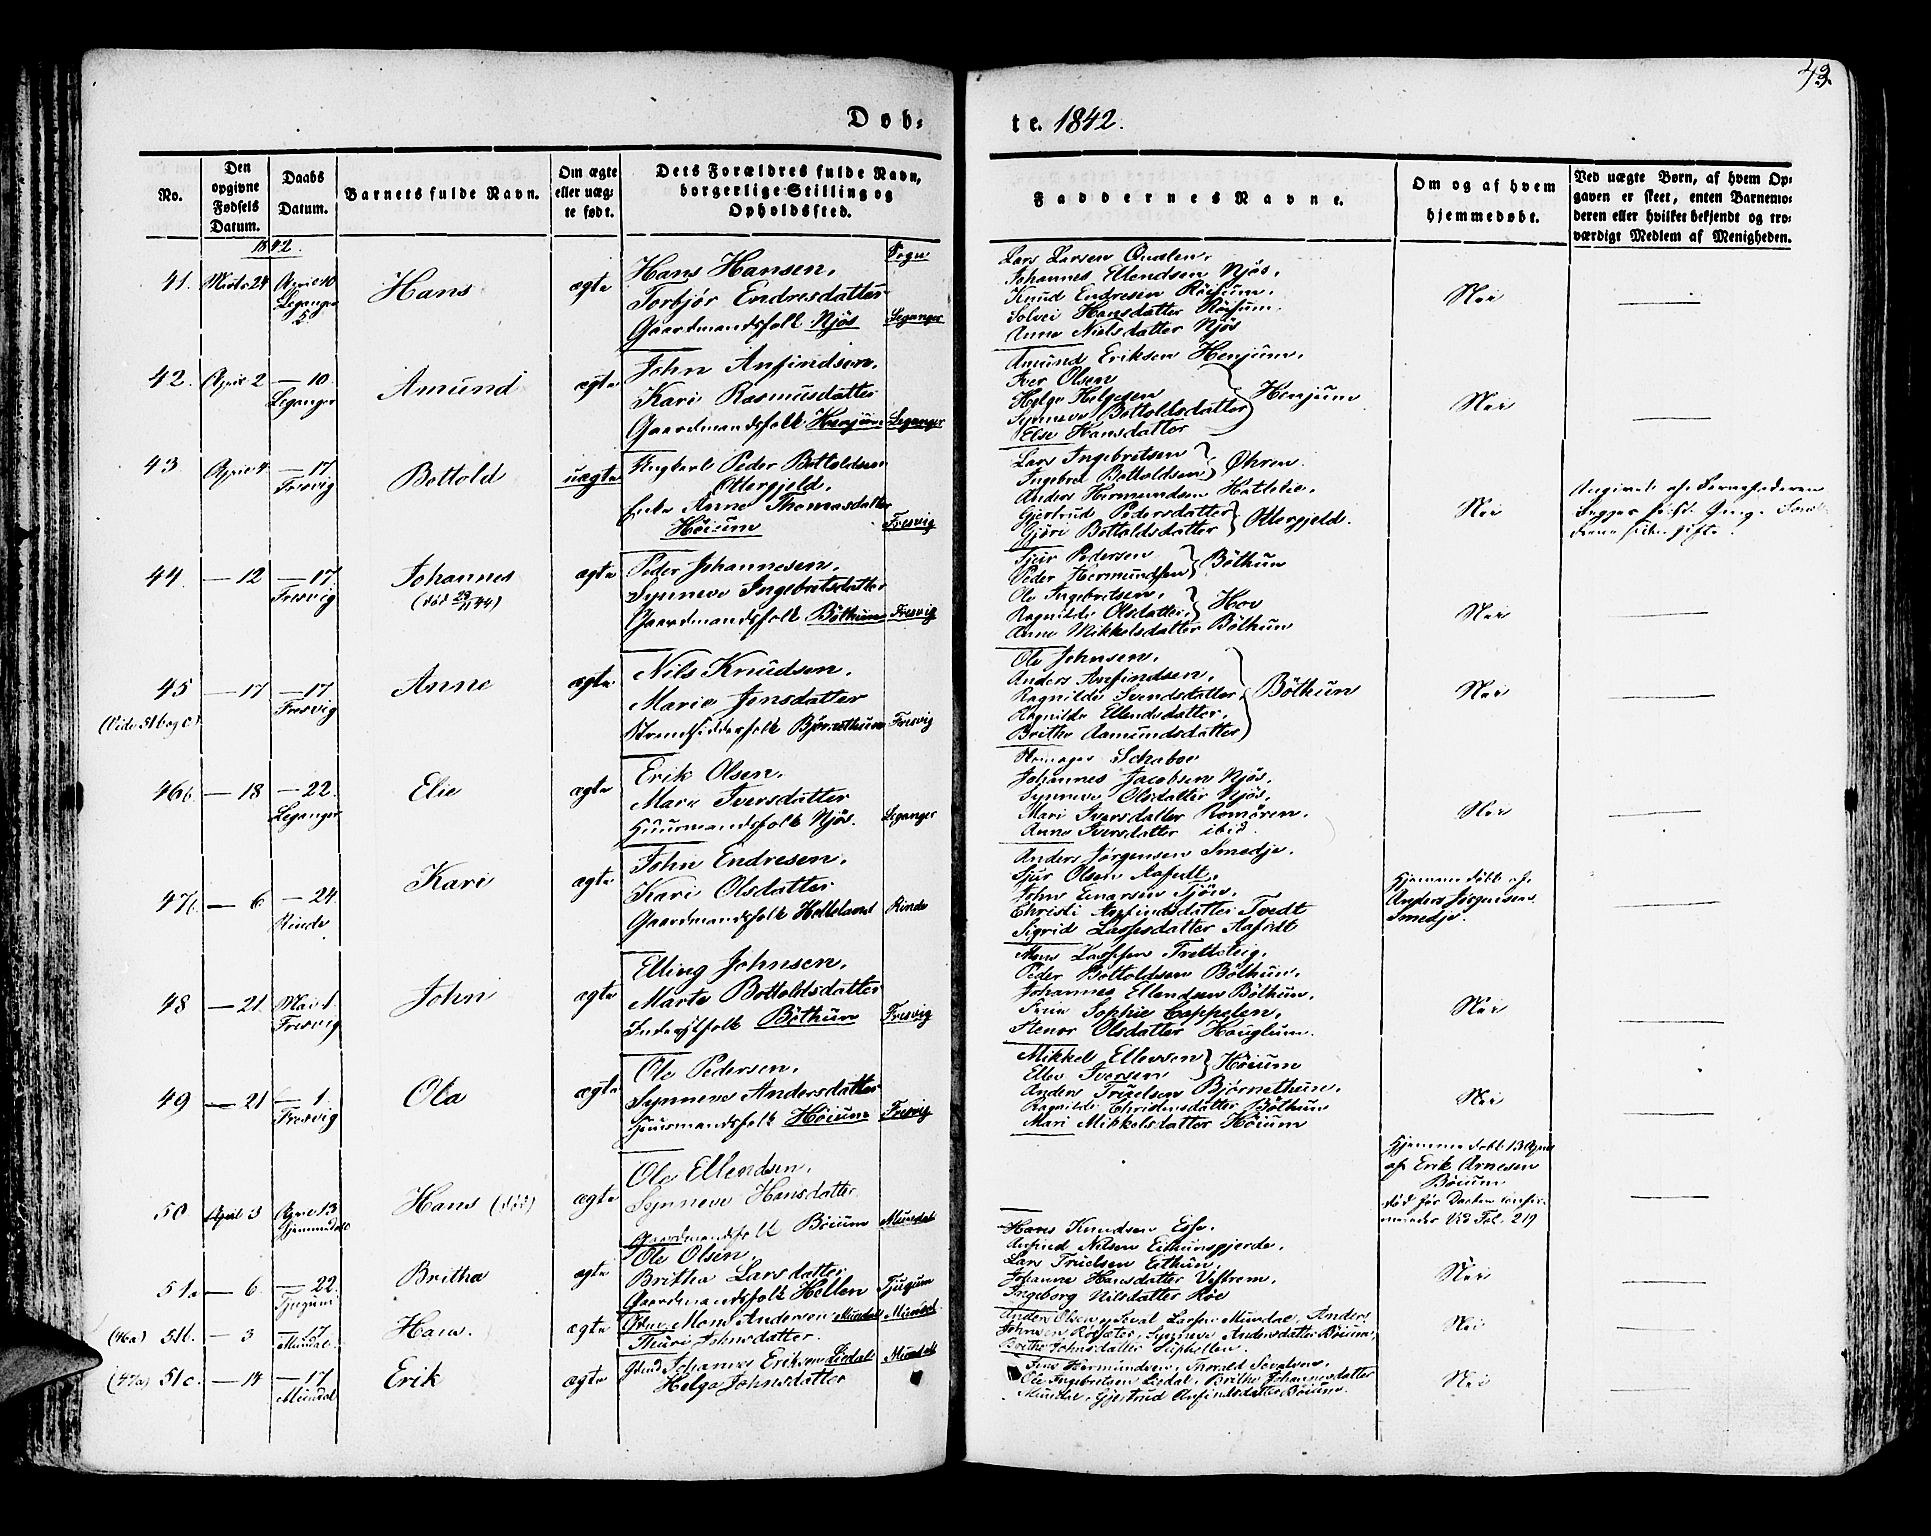 43.
Døb-
te. 1842.
No.
Den opgivne Fødsels Datum.
Daabs Datum.
Barnets fulde Navn.
Om ægte eller uægte født.
Dets Forældres fulde Navn, borgerlige Stilling og Opholdssted.
Faddernes Navne.
Om og af hvem hjemmedøbt.
Ved uægte Børn, af hvem Opgaven er skeet, enten Barnemoderen eller hvilket bekjendt og troværdigt Medlem af Menigheden.
1842.
Sogn
41. Marts 24 April 10 Leganger
Hans
ægte
Hans Hansen,
Torbjør Endresdatter
Gaardmandsfolk Njøs
Leganger
Lars Larsen Qualen,
Johannes Ellendsen Njøs,
Knud Endresen Röisum,
Solvei Hansdatter Röisum.
Anne Nielsdatter Njös
Nei
42. April 2 — 10. Leganger
Amund
ægte
John Anfindsen,
Kari Rasmusdatter
Gaardmandsfolk Henjum
Leganger
Amund Eriksen Henjum,
Iver Olsen
Helge Helgesen
Synneve Bottoldsdatter
Else Hansdatter
Henjum
Nei
43 April 4 — 17. Fresvig
Bottold
uægte
Ungkarl Peder Bottoldsen
Ottergjeld,
Enke Anne Thomasdatter
Høium
Fresvig
Lars Ingebretsen
Ingebret Bottoldsen
Øhren.
Anders Hermundsen Hatlelie,
Gjertrud Pedersdatter
Gjøri Bottoldsdatter
Ottergjeld.
Nei
Angivet af Barnefaderen
44. — 12 — 17. Fresvig
Johannes
(død 29/11 44)
ægte
Peder Johannesen,
Synneve Ingebretsdatter
Gaardmandsfolk Bøthum
Fresvig
Sjur Pedersen
Peder Hermundsen
Böthun
Ole Ingebretsen,
Ragnilde Olsdatter,
Hov
Anne Mikkelsdatter Böthun
Nei
45 — 17 — 17 Fresvig
Anne
ægte
Nils Knudsen,
Marie Jonsdatter
Strandsidderfolk Bjørnethun
Fresvig
Ole Johnsen,
Anders Anfindsen,
Ragnilde Svendsdatter
Ragnilde Ellendsdatter,
Britha Aamundsdatter
Böthun
Nei
46b. — 18 — 22. Leganger
Elie
ægte
Erik Olsen,
Mari Iversdatter
Huusmandsfolk Njøs.
Leganger
Johannes Jacobsen Njøs,
Synneve Olsdatter Njøs,
Mari Iversdatter Romøren,
Anne Iversdatter ibid.
Nei
47b. — 6 — 24. Rinde
Kari
ægte
John Endresen,
Kari Olsdatter
Gaardmandsfolk Helleland
Rinde
Anders Jørgensen Smedje,
Sjur Olsen Aafedt,
John Einarsen Tjøn,
Christi Anfindsdatter Tvedt
Sigrid Lassesdatter Aafedt
Hjemmedøbt af
Anders Jørgensen
Smedje.
48 — 21. Mai 1. Fresvig
John
ægte
Elling Johnsen,
Marte Bottoldsdatter
Inderstfolk Böthum
Fresvig
Mons Lassesen Tretteteig,
Peder Bottoldsen Böthun,
Johannes Ellendsen Böthum,
Frue Sophie Cappelen,
Stenor Olsdatter Hauglum.
Nei
49 — 21 — 1. Fresvig
Ola
ægte
Ole Pedersen,
Synneve Andersdatter
Huusmandsfolk Höium
Fresvig
Mikkel Ellevsen
Ellev Iversen
Höium
Anders Truelsen Bjørnethun,
Ragnilde Christensdatter Böthun
Mari Mikkelsdatter Höium
Nei
50 April 3 April 13 Hjemmedøbt
Hans (død)
ægte
Ole Ellendsen,
Synneve Hansdatter
Gaardmandsfolk Böium
Mundal
Hjemmedøbt 13 April
af Erik Arnesen
Böium
død før Daaben confirmeredes Vid Fol. 219
51a — 6 — 22. Tjugum
Britha
ægte
Ole Olsen,
Britha Larsdatter
Gaardmandsfolk Hellen
Tjugum
Hans Knudsen Esse,
Anfind Nilsen Eithunsgjerde,
Lars Truelsen Eithun,
Johanne Hansdatter Vestrem,
Ingeborg Nilsdatter Röe
Nei
(46a) 51b. — 3 — 17 Mundal
Hans.
ægte
Mons Andersen Mundal
Thuri Johnsdatter.
Mundal
Anders Olsen og Seval Larsen Mundal, Anders
Johnsen Röysæter, Synneve Andersdatter Böium,
Brithe Johnsdatter Suphellen.
Nei
(47a) 51c. — 14 — 17 Mundal
Erik
ægte
Johannes Eriksen Liedal
Helga Johnsdatter
Mundal
Jens Hermundsen, Thorald Sevalsen,
Ole Ingebretsen Liedal, Brithe Johannesdatter
Mundal, Gjertrud Anfindsdatter Böium.
Nei